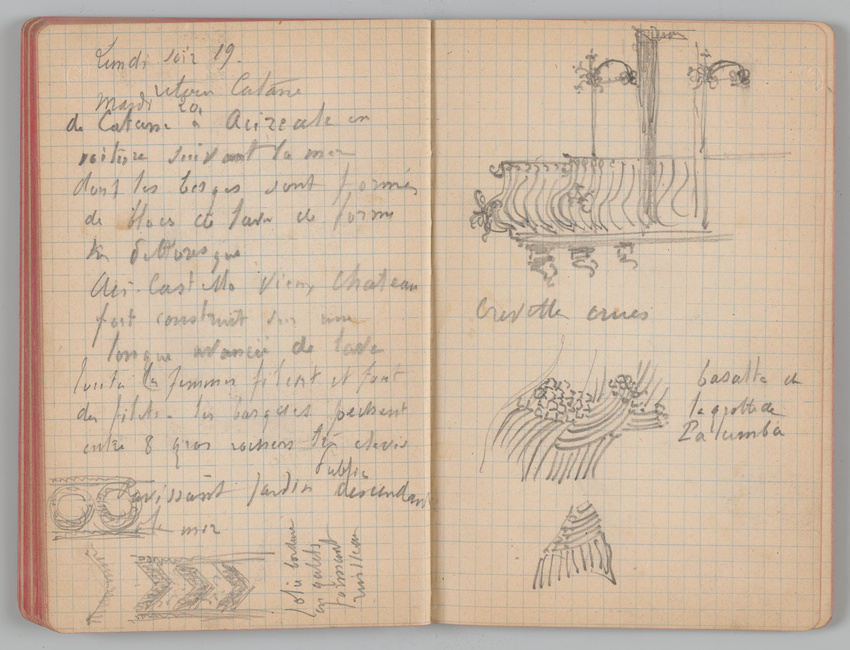 Lundi soir 19.
retour Catane
Mardi 20
de Catane à Acireale en
voiture suivant la mer
dont les berges sont formées
de blocs de lave de forme
Aci-Castello vieux chateau
fort construit sur une
longue avancée de lave
les femmes filent et font
des filets. les barques pechent
entre 8 gros rochers très élevés
public
Ravissant jardin descendant
mer
jolie bordure
en galets
formant
ruisseau
Crevettes crues
basalte de
la grotte de
Palumba